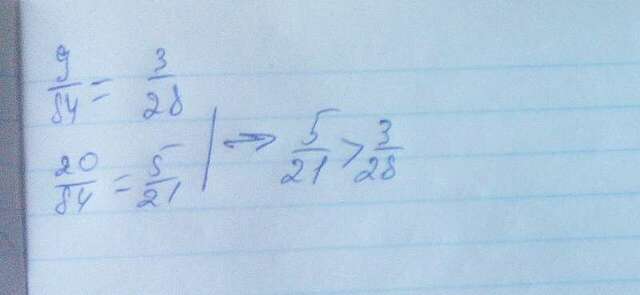 9/84 = 3/28
20/84 = 5/21 | → 5/21 > 3/28